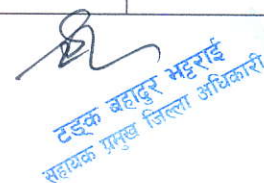 टङ्क बहादुर भट्टराई
सहायक प्रमुख जिल्ला अधिकारी